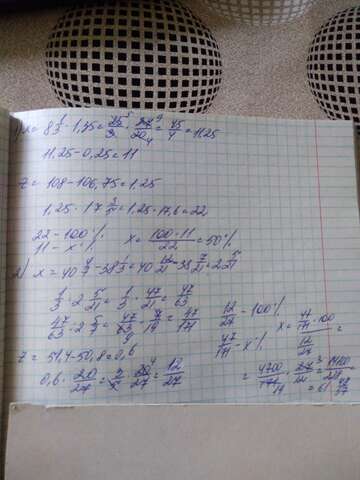 1) x = 8 1/3 · 1,35 = 25/3 · 27/20 = 45/4 = 11,25
11,25 - 0,25 = 11
z = 108 - 106,75 = 1,25
1,25 · 17 3/5 = 1,25 · 17,6 = 22
22 - 100%
11 - x% x = 100·11/22 = 50%
2) x = 40 4/7 - 38 1/3 = 40 12/21 - 38 7/21 = 2 5/21
1/3 · 2 5/21 = 1/3 · 47/21 = 47/63
47/63 : 2 5/7 = 47/63 · 7/19 = 47/171 12/27 - 100%
47/171 - x% x = 47/171 · 100 / 12/27
z = 51,4 - 50,8 = 0,6
0,6 · 20/27 = 3/5 · 20/27 = 12/27
= 4700/171 · 27/12